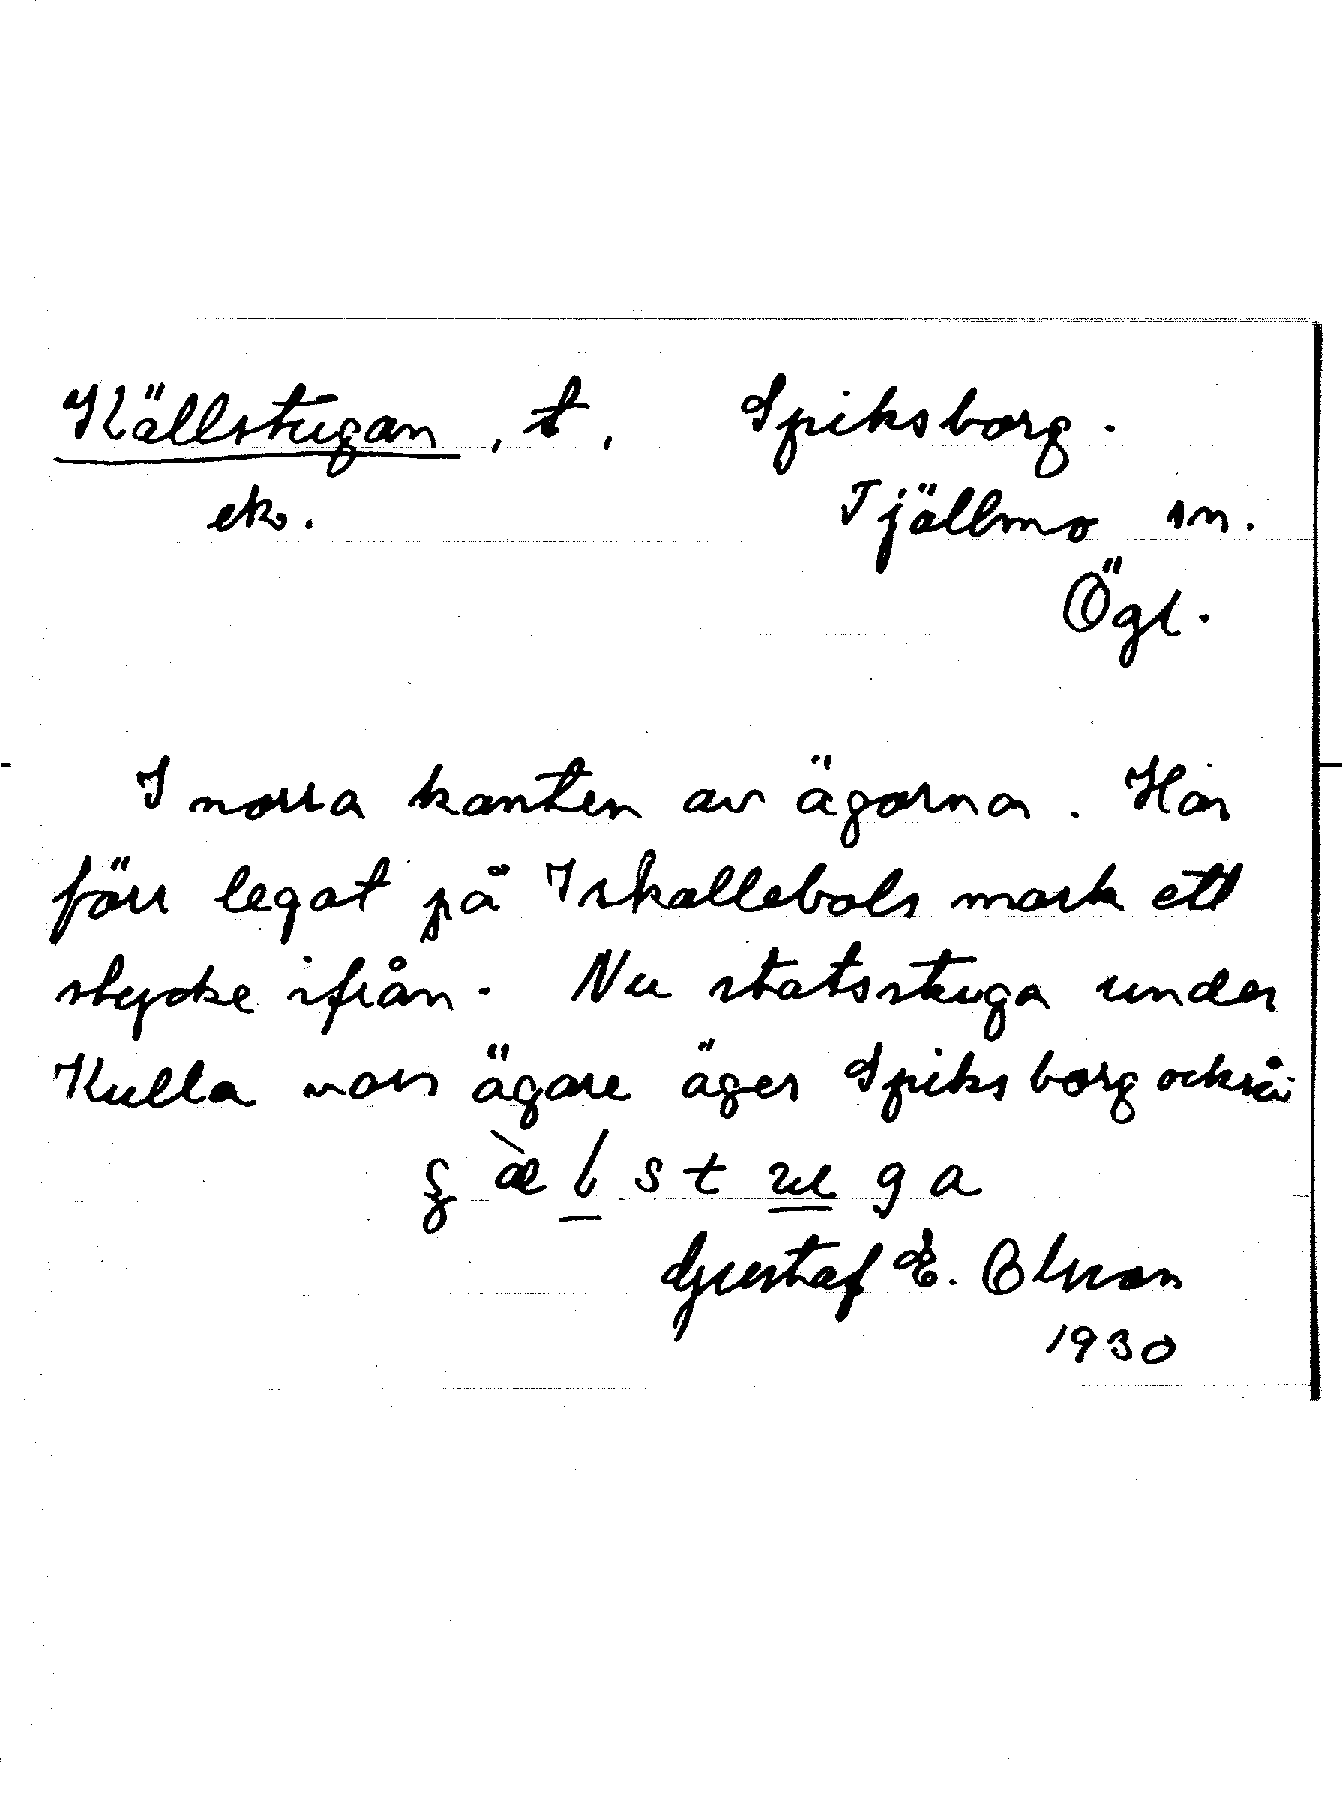 Källstugan, t, Spiksborg.
ek. Tjällmo sn.
Ögl.
I norra kanten av ägorna. Har
förr legat på Iskallebols mark ett
stycke ifrån. Nu statsstuga under
Kulla vars ägare äger Spiksborg också
Gustaf E. Olsson
1930